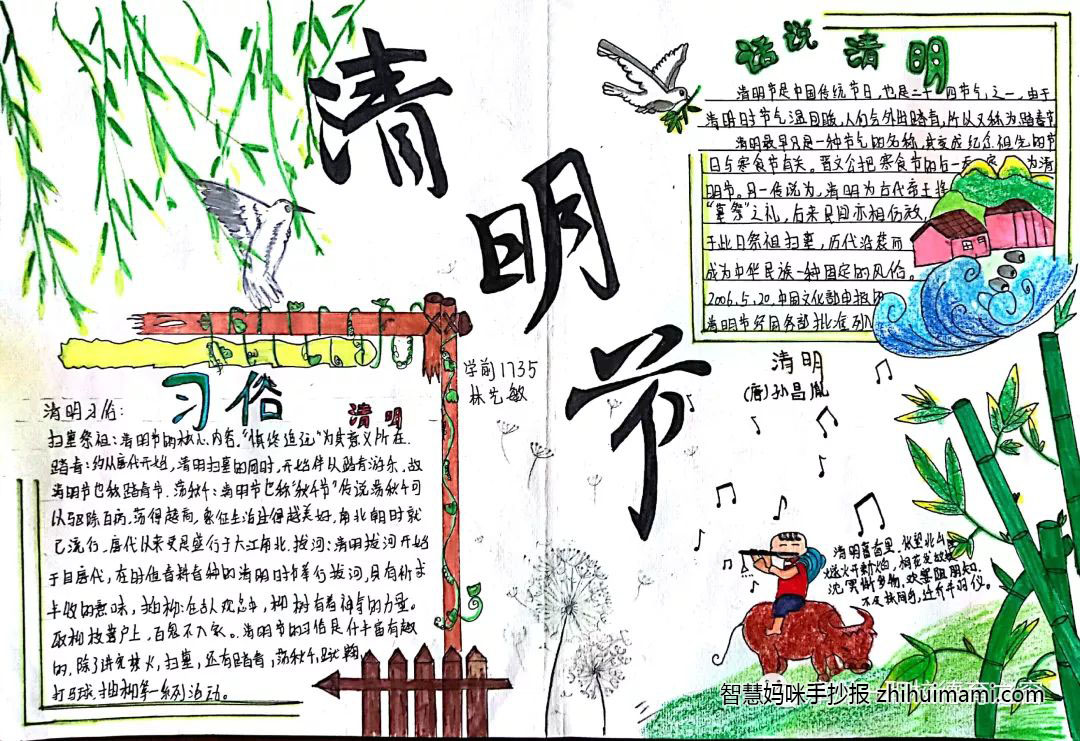 清明节
话说清明
清明节是中国传统节日，也是二十四节气之一，由于
清明时节气温回暖，人们会外出踏青，所以又称为踏春节
清明最早只是一种节气的名称，其变成纪念祖先的节
日与寒食节有关。晋文公把寒食节的后一天 为清
明节。另一传说为，清明为古代帝王将
“墓祭”之礼，后来民间亦相仿效，
于此日祭祖扫墓，历代沿袭而
成为中华民族一种固定的风俗。
2006.5.20.中国文化部申报的
清明节 国务部批准列入
学前1735
林 敏
习俗
清明
清明习俗：
扫墓祭祖：清明节的核心内容，“慎终追远”为其意义所在．
踏青：约从唐代开始，清明扫墓的同时，开始伴以踏青游乐，故
清明节也称踏青节．荡秋千：清明节也称“秋千节”传说荡秋千可
以驱除百病，荡得越高，象征生活过得越美好，南北朝时就
已流行，唐代以来更是盛行于大江南北．拔河：清明拔河开始
于自唐代，在时值春耕春种的清明时节举行拔河，具有祈求
丰收的意味，插柳：在古人观念中，柳树有着神奇的力量。
取柳枝著户上，百鬼不入家。清明节的习俗是 丰富有趣
的，除了讲究禁火，扫墓，还有踏青，荡秋千，蹴鞠，
打马球，插柳等一系列活动。
清明
(唐)孙昌胤
清明暮春里，怅望北山
燧火开新焰，桐花发故
沈冥惭岁物，欢宴阻朋知．
不及林间鸟，迁乔并羽仪。
智慧妈咪手抄报 zhihuimami.com